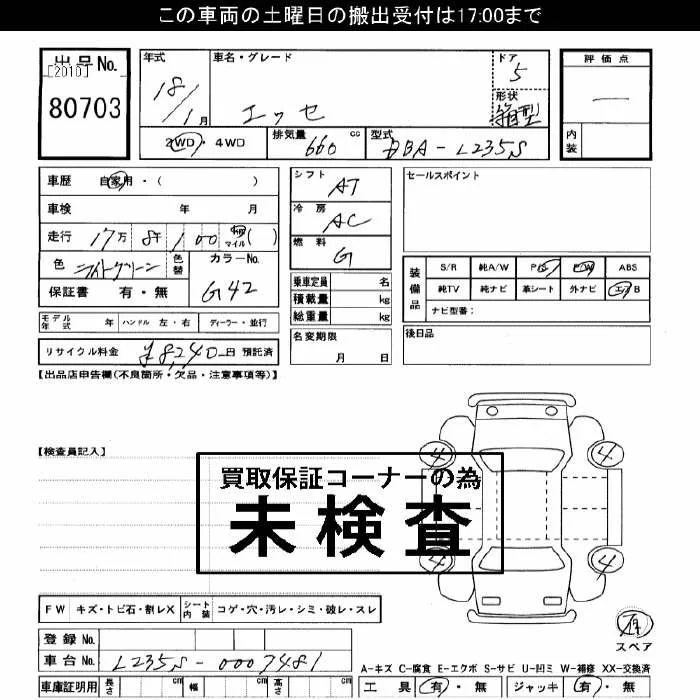 この車両の土曜日の搬出受付は17:00まで
出品No.
[2010]
80703
年式 車名・グレード ドア
18/1月 エッセ 5
形状
箱型
2WD・4WD 排気量 660 cc 型式 DBA-L235S
評価点
—
内装
車歴 自家用・( )
車検 年 月
走行 17万8千100 km マイル( )
色 ライトグリーン 色替 カラーNo.
G42
保証書 有・無
シフト AT
冷房 AC
燃料 G
乗車定員 名
積載量 kg
総重量 kg
名変期限
月 日
セールスポイント
装備品
S/R 純A/W P/S P/W ABS
純TV 純ナビ 革シート 外ナビ エアB
ナビ型番:
後日品
モデル年式 年 ハンドル 左・右 ディーラー・並行
リサイクル料金 ¥8,240-円 預託済
【出品店申告欄(不良箇所・欠品・注意事項等)】
【検査員記入】
買取保証コーナーの為
未検査
4 4
4 4
有
スペア
FW キズ・トビ石・割レX シート内装 コゲ・穴・汚レ・シミ・破レ・スレ
登録No.
車台No. L235S-0007481
車庫証明用 長さ cm 幅 cm 高さ cm
A-キズ C-腐食 E-エクボ S-サビ U-凹ミ W-補修 XX-交換済
工具 有・無 ジャッキ 有・無